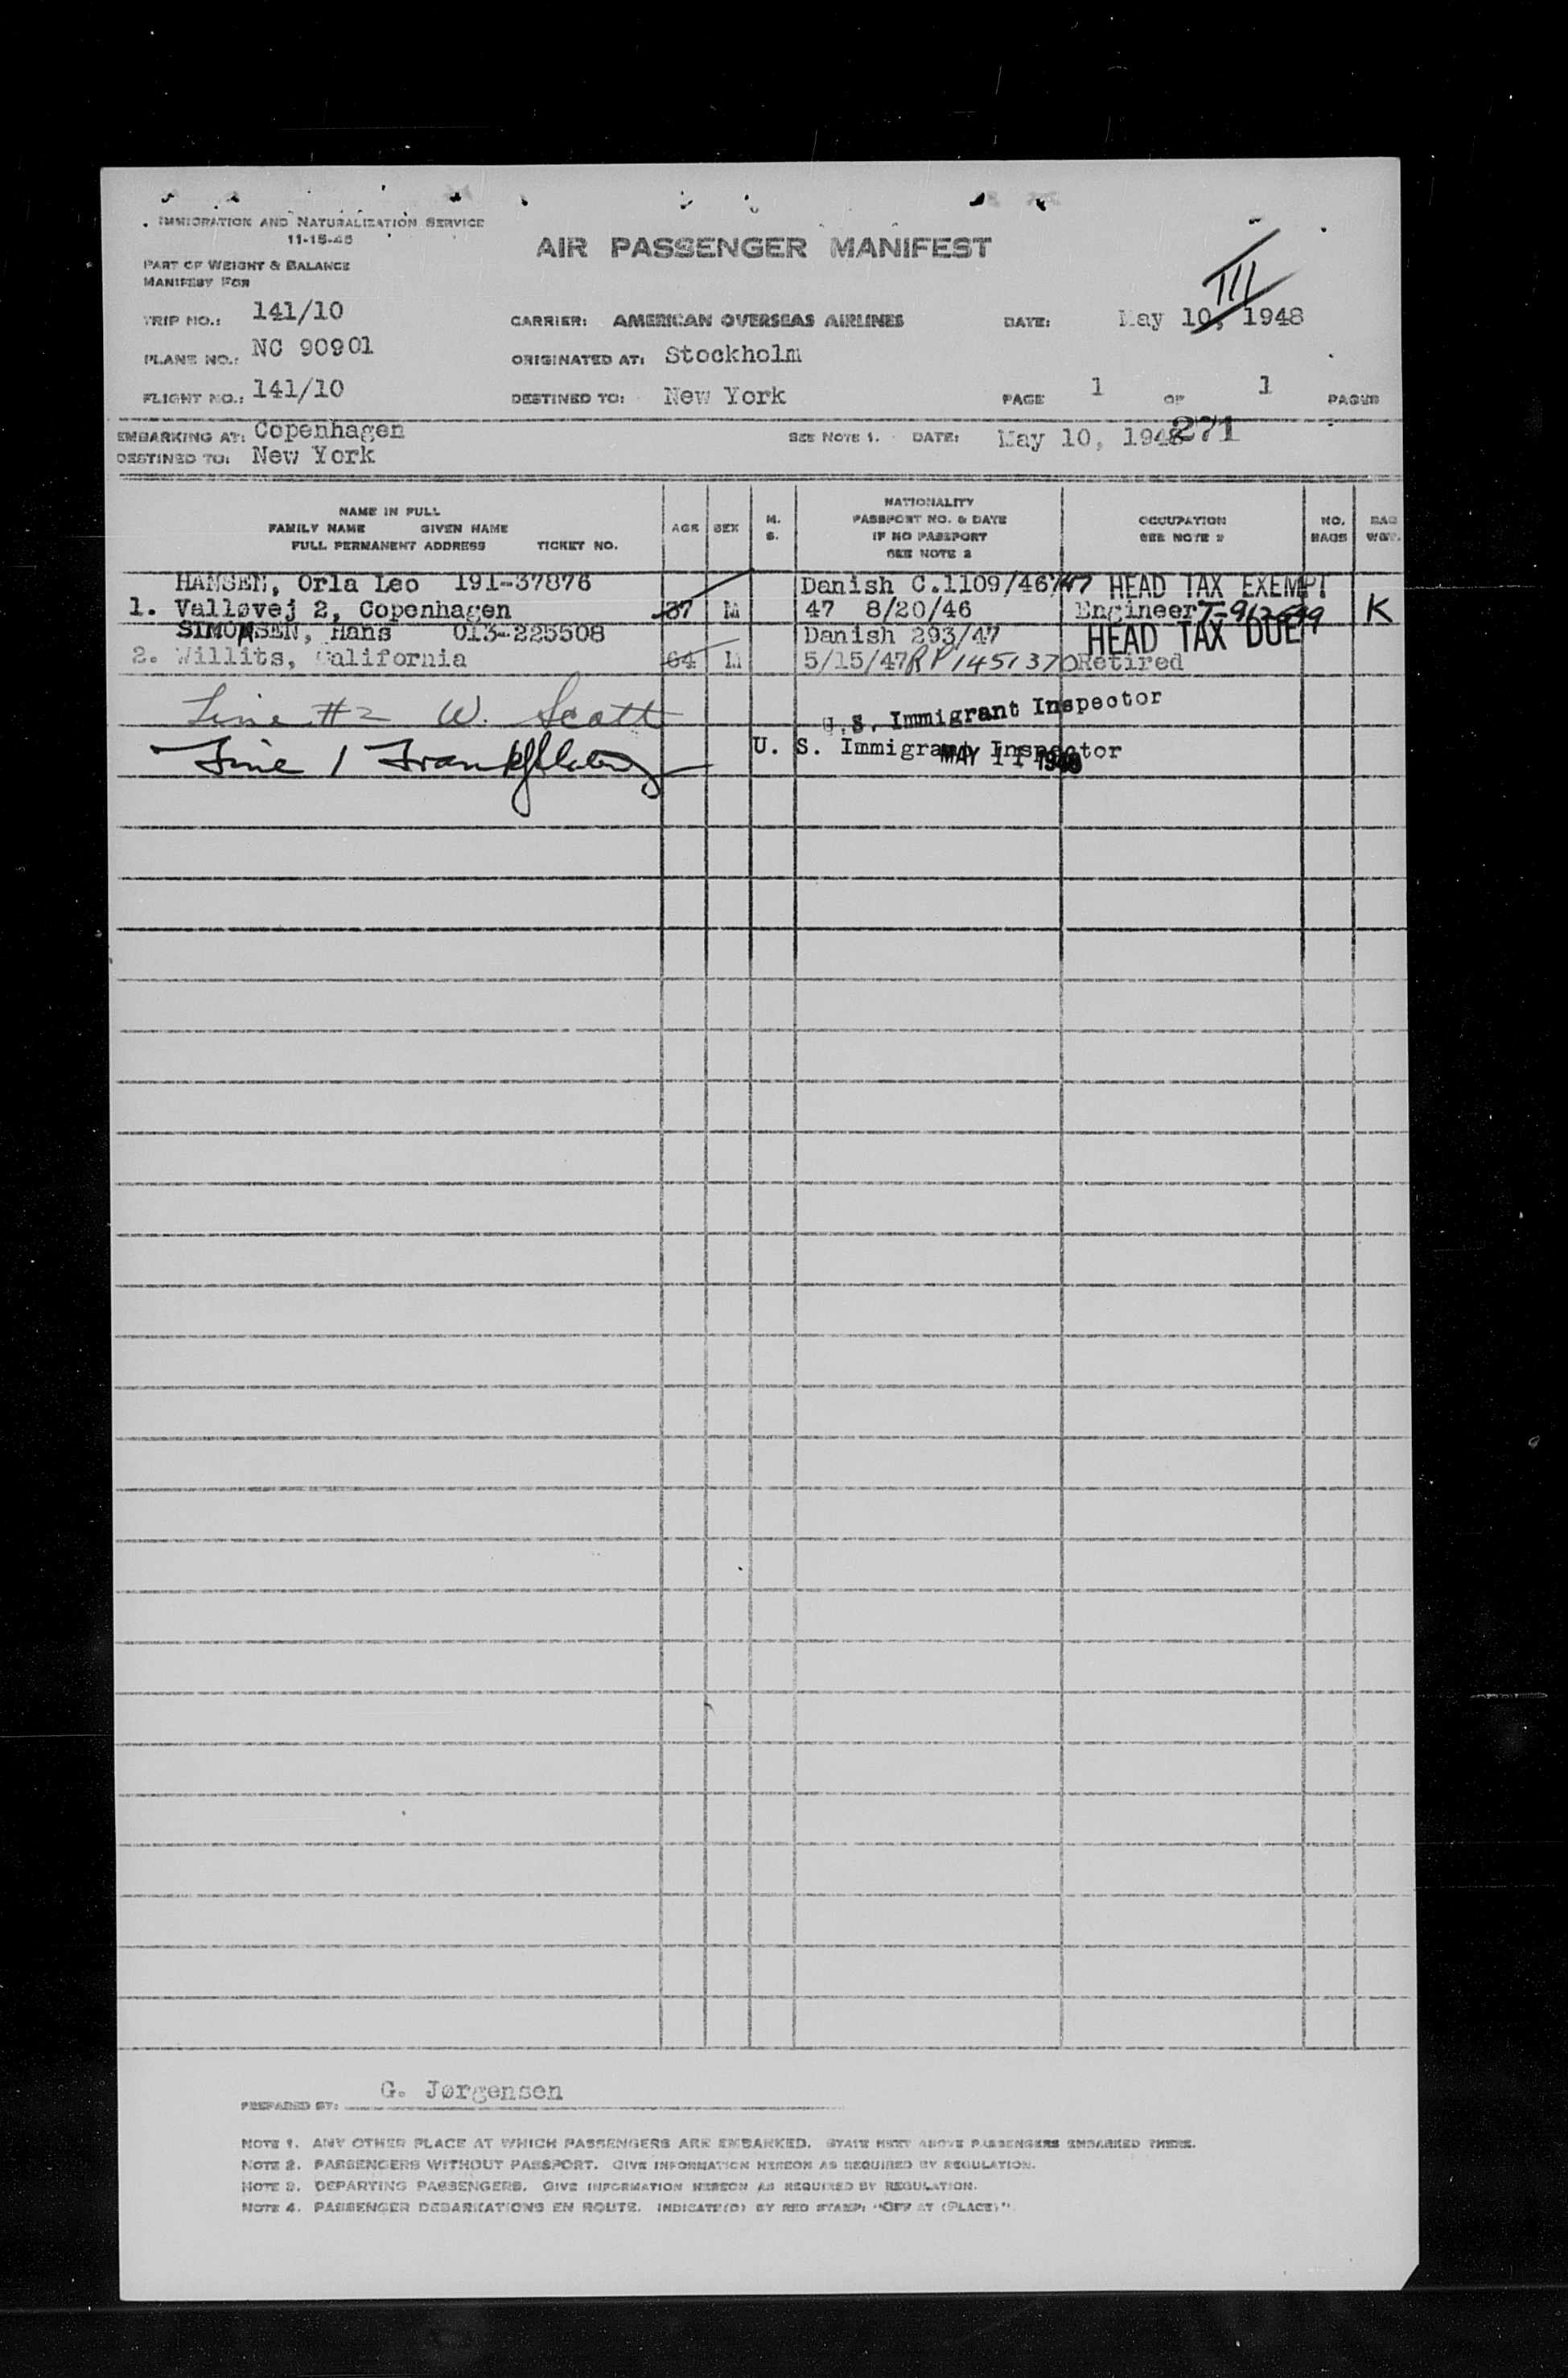 IMMIGRATION AND NATURALIZATION SERVICE
11-15-45
AIR PASSENGER MANIFEST
PART OF WEIGHT & BALANCE
MANIFEST FOR
III
TRIP NO.: 141/10 CARRIER: AMERICAN OVERSEAS AIRLINES DATE: May 10, 1948
PLANE NO.: NC 90901 ORIGINATED AT: Stockholm
FLIGHT NO.: 141/10 DESTINED TO: New York PAGE 1 OF 1 PAGES
EMBARKING AT: Copenhagen SEE NOTE 1. DATE: May 10, 1948 271
DESTINED TO: New York
NAME IN FULL
FAMILY NAME GIVEN NAME
FULL PERMANENT ADDRESS TICKET NO.
AGE SEX M. S.
NATIONALITY
PASSPORT NO. & DATE
IF NO PASSPORT
SEE NOTE 2
OCCUPATION
SEE NOTE 2
NO. BAGS
BAG WGT.
HANSEN, Orla Leo 191-37876 Danish C.1109/46/47 HEAD TAX EXEMPT
1. Valløvej 2, Copenhagen 37 M 47 8/20/46 Engineer K
SIMONSEN, Hans 013-225508 Danish 293/47 HEAD TAX DUE
2. Willits, California 64 M 5/15/47 RP 1451370 Retired
Line #2 W. Scott U.S. Immigrant Inspector
Line 1 U. S. Immigrant Inspector
MAY 11 1948
G. Jørgensen
PREPARED BY:
NOTE 1. ANY OTHER PLACE AT WHICH PASSENGERS ARE EMBARKED. STATE NEXT ABOVE PASSENGERS EMBARKED THERE.
NOTE 2. PASSENGERS WITHOUT PASSPORT. GIVE INFORMATION HEREON AS REQUIRED BY REGULATION.
NOTE 3. DEPARTING PASSENGERS. GIVE INFORMATION HEREON AS REQUIRED BY REGULATION.
NOTE 4. PASSENGER DEBARKATIONS EN ROUTE. INDICATE(D) BY RED STAMP: "OFF AT (PLACE)".